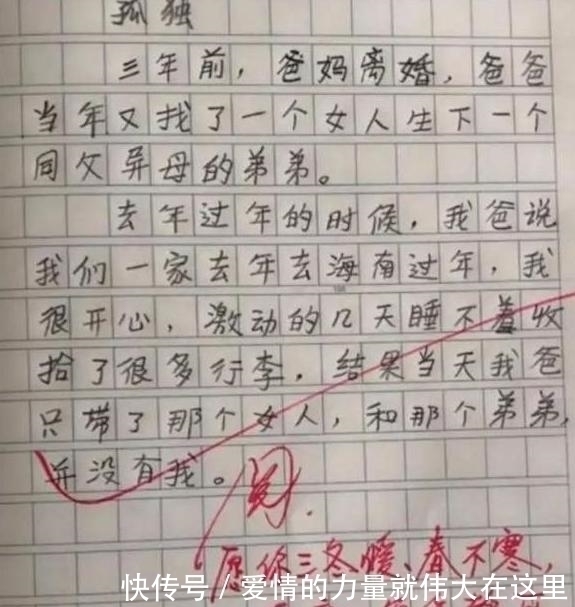 孤独
三年前，爸妈离婚，爸爸
当年又找了一个女人生下一个
同父异母的弟弟。
去年过年的时候，我爸说
我们一家去年去海南过年，我
很开心，激动的几天睡不羞收
拾了很多行李，结果当天我爸
只带了那个女人，和那个弟弟，
并没有我。
阅.
愿你三冬暖、春不寒，
快传号 / 爱情的力量就伟大在这里